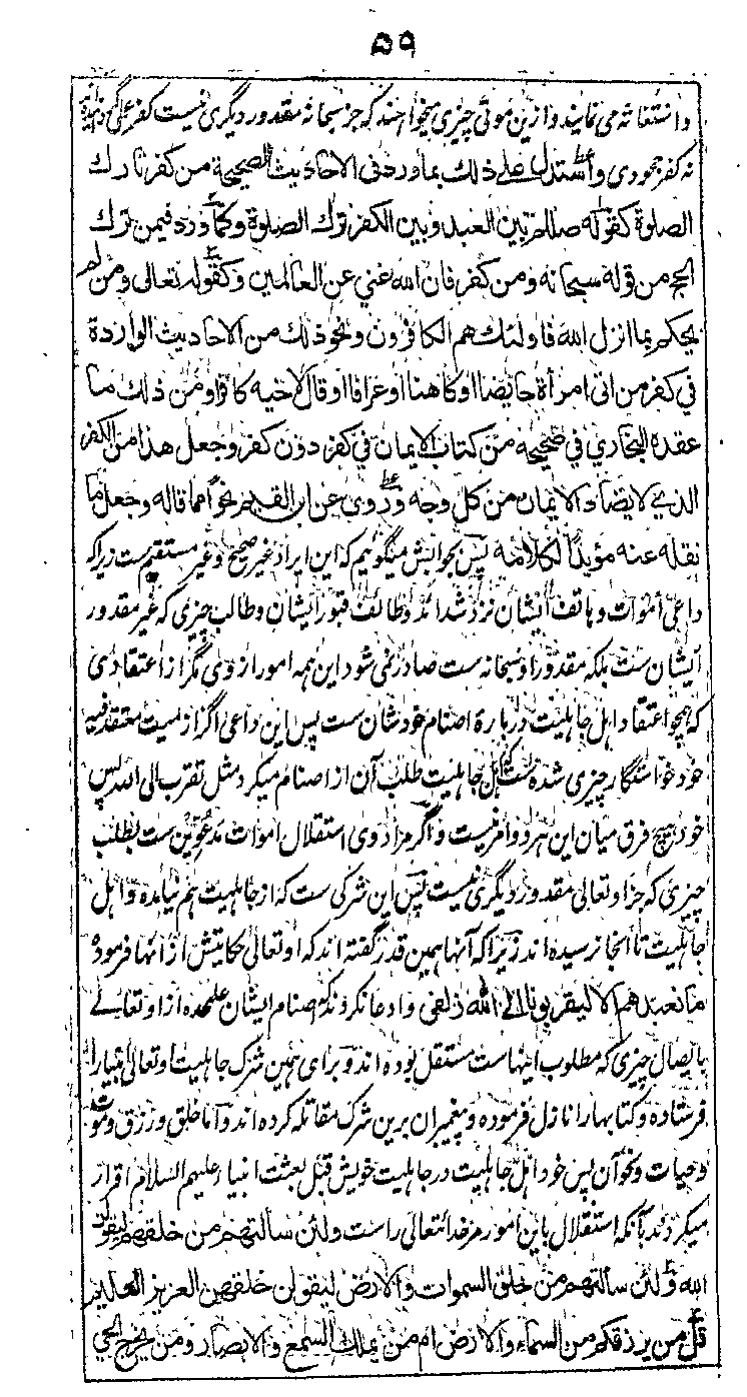 ۵۹
واستغاثه می نمایند و ازین موتی چیزی میخواهند که جز سبحانه مقدور دیگری نیست کفر عملی
نه کفر جحودی واستدل علی ذلک بماورد فی الاحادیث الصحیحة من کفر تارک
الصلوة کقوله صللم بین العبد وبین الکفر ترك الصلوة وکما ورد فیمن ترك
الحج من قوله سبحانه ومن کفر فان الله غنی عن العالمین وکقوله تعالی ومن لم
یحکم بما انزل الله فاولئك هم الکافرون ونحو ذلك من الاحادیث الواردة
فی کفر من اتی امرأة حایضا او کاهنا او عرافا او قال لاخیه کافر ومن ذلك ما
عقده البخاری فی صحیحه من کتاب الایمان فی کفر دون کفر وجعل هذا من الکفر
الذی لا یضاد الایمان من کل وجه وروی عن ابن القیم نحو اما قاله وجعل ما
نقله عنه مؤیدا لکلامه پس بجوابش میگوئیم که این ایراد غیر صحیح و غیر مستقیم ست زیراکه
داعی اموات و هاتف ایشان نزد شدائد و طائف قبور ایشان و طالب چیزی که غیر مقدور
ایشان ست بلکه مقدور او سبحانه ست صادر نمی شود این همه امور از وی مگر از اعتقادی
که همچو اعتقاد اهل جاهلیت درباره اصنام خودشان ست پس این داعی اگر از میت معتقد فیه
خود خواستگار چیزی شده ست که اهل جاهلیت طلب آن از اصنام میکرد مثل تقرب الی الله پس
خود هیچ فرق میان این هر دو امر نیست و اگر مراد وی استقلال اموات مدعوین ست بطلب
چیزی که جز او تعالی مقدور دیگری نیست پس این شرکی ست که از جاهلیت هم نیامده و اهل
جاهلیت تا انجا نرسیده اند زیرا که آنها همین قدر گفته اند که او تعالی حکایتش از آنها فرموده
ما نعبدهم الا لیقربونا الی الله زلفی و ادعا نکردند که اصنام ایشان علحده از او تعالے
بایصال چیزی که مطلوب اینها ست مستقل بوده اند و برای همین شرک جاهلیت او تعالی انبیا را
فرستاده و کتابها را نازل فرموده و پیغمبران برین شرک مقاتله کرده اند و اما خلق و رزق و موت
و حیات و نحو آن پس خود اهل جاهلیت در جاهلیت خویش قبل بعثت انبیاء علیهم السلام اقرار
میکردند بآنکه استقلال باین امور مر خدا تعالی را ست ولئن سألتهم من خلقهم لیقولن
الله ولئن سألتهم من خلق السموات والارض لیقولن خلقهن العزیز العلیم
قل من یرزقکم من السماء والارض ام من یملك السمع والابصار ومن یخرج الحی